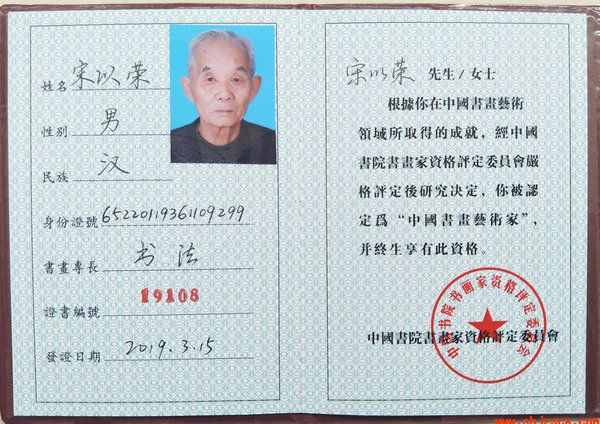 姓名 宋以荣
性别 男
民族 汉
身份證號 65220119361109299
書畫專長 书法
證書編號 19108
發證日期 2019.3.15
宋以荣 先生/女士
根據你在中國書畫藝術
領域所取得的成就，經中國
書院書畫家資格評定委員會嚴
格評定後研究决定，你被認
定爲“中國書畫藝術家”，
并終生享有此資格。
中國書院書畫家資格評定委員會
中国书院书画家资格评定委员会